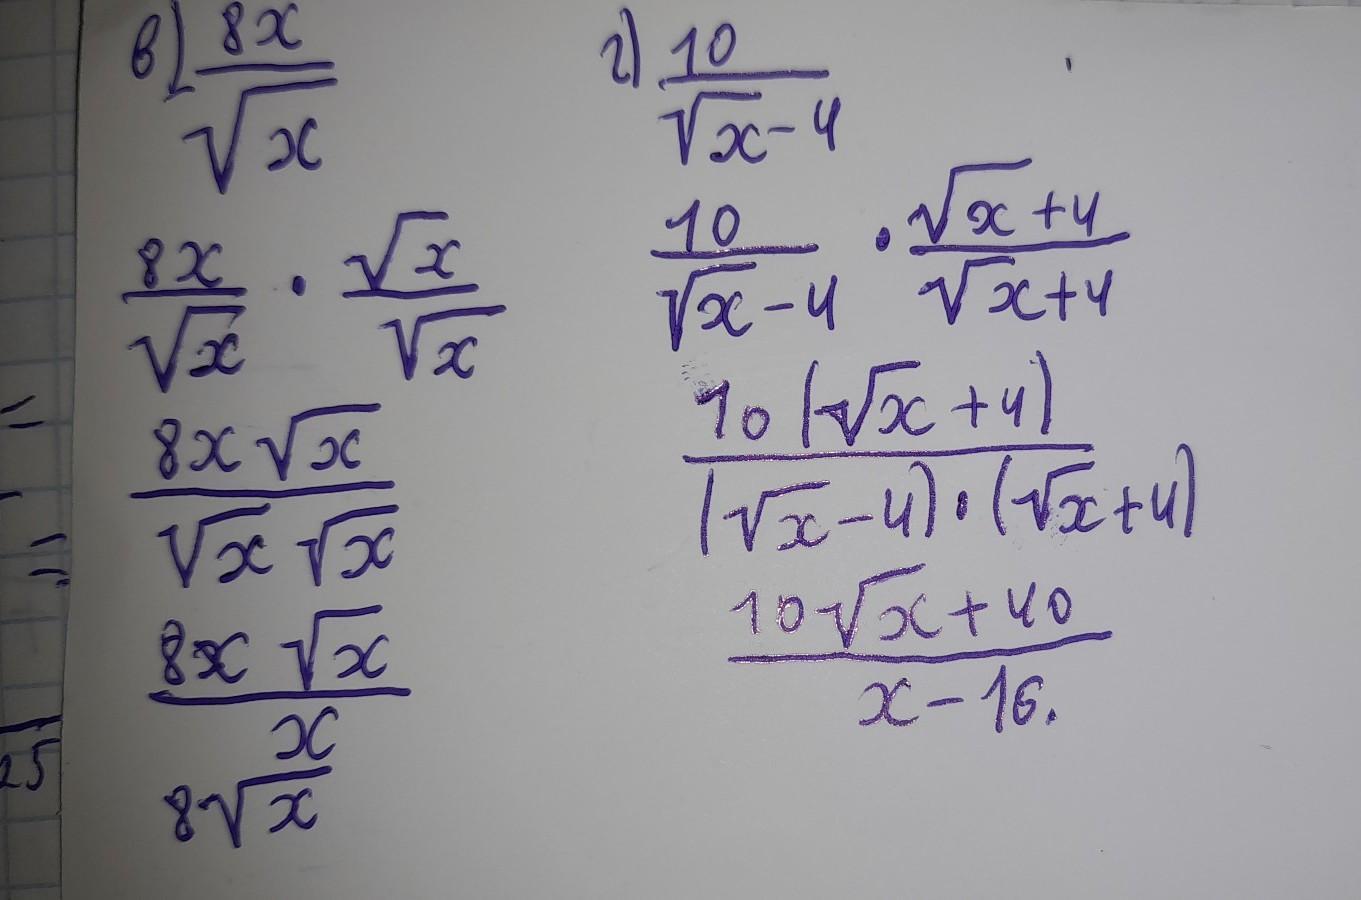 в) 8x/√x
8x/√x · √x/√x
8x√x/√x √x
8x √x/x
8√x
г) 10/√x-4
10/√x-4 · √x+4/√x+4
10(√x+4)/(√x-4)·(√x+4)
10√x+40/x-16.
=
=
25